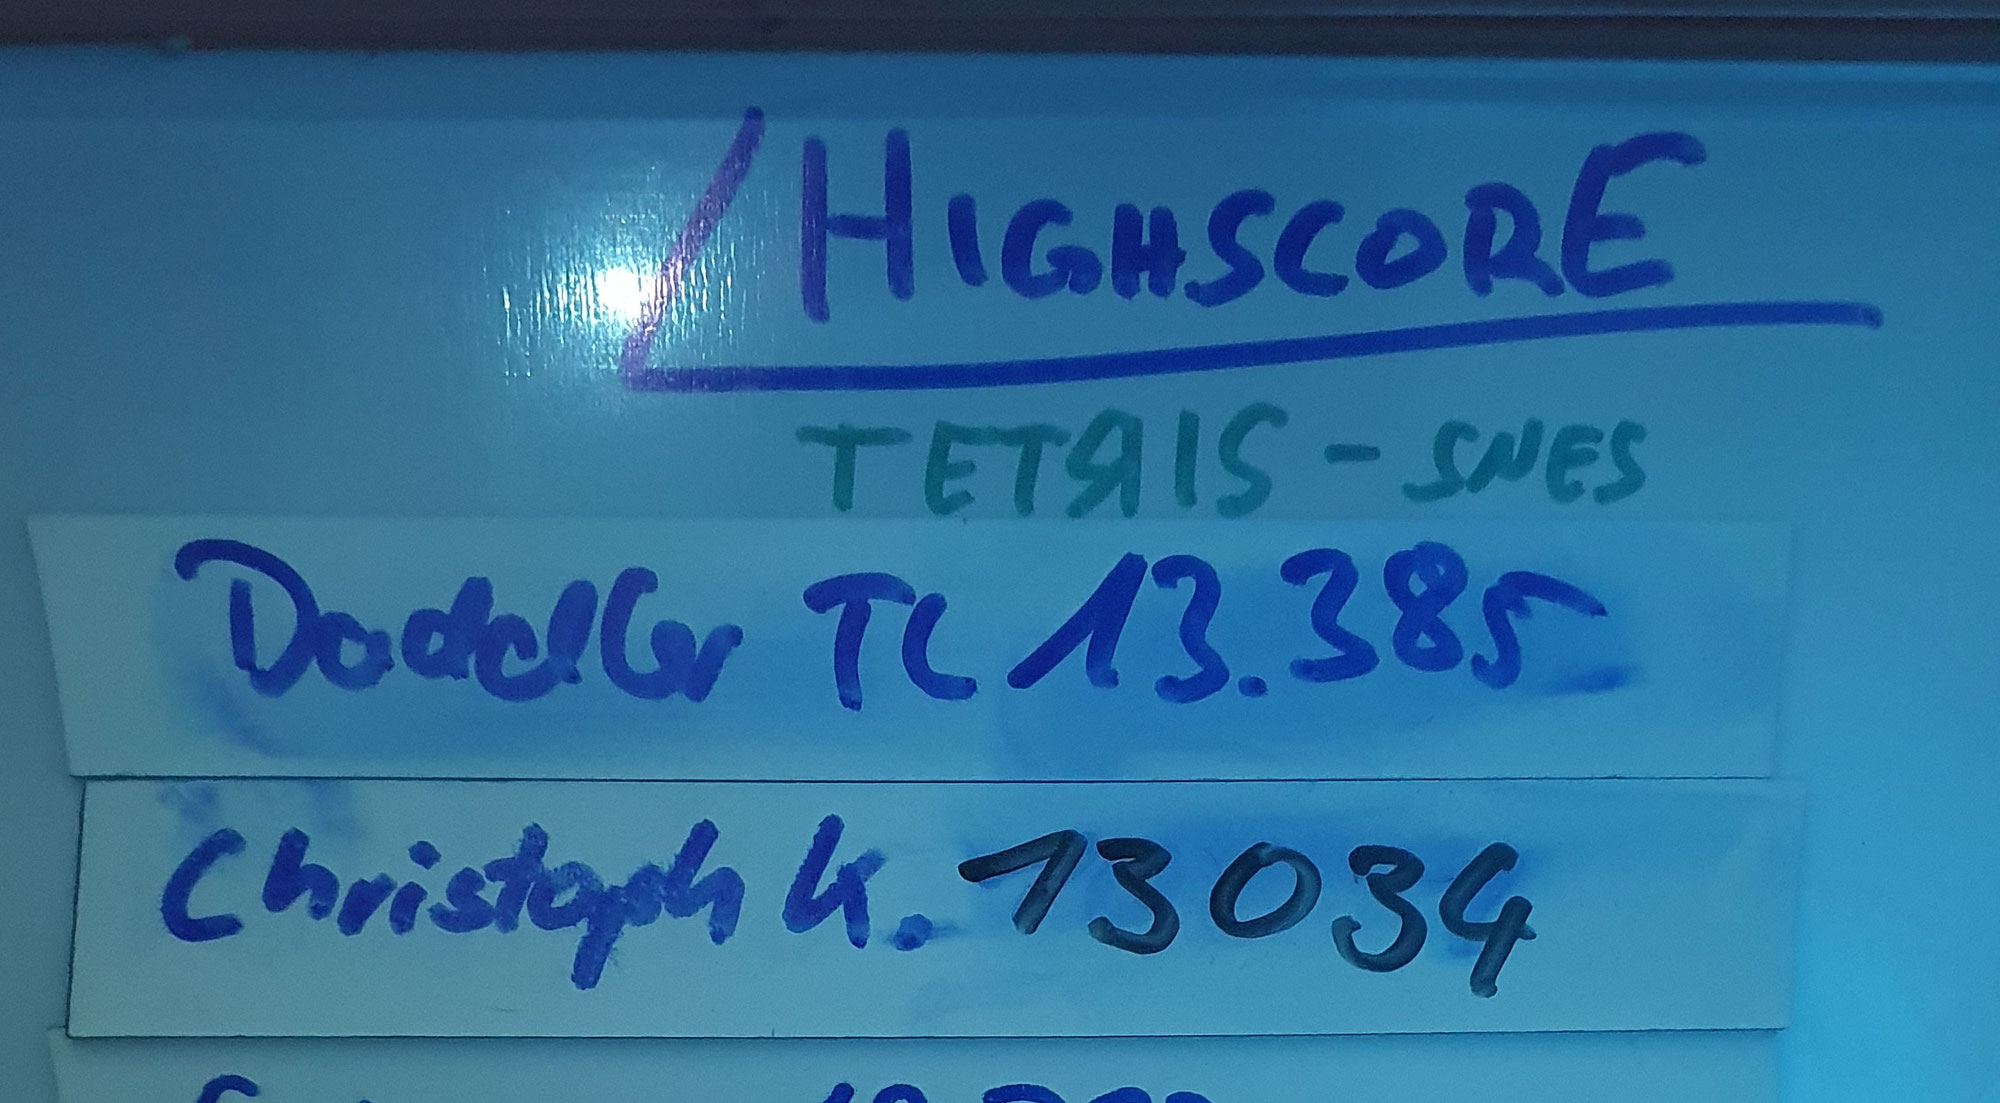 HIGHSCORE
TETЯIS - SNES
Daddler TC 13.385
Christoph K. 13034